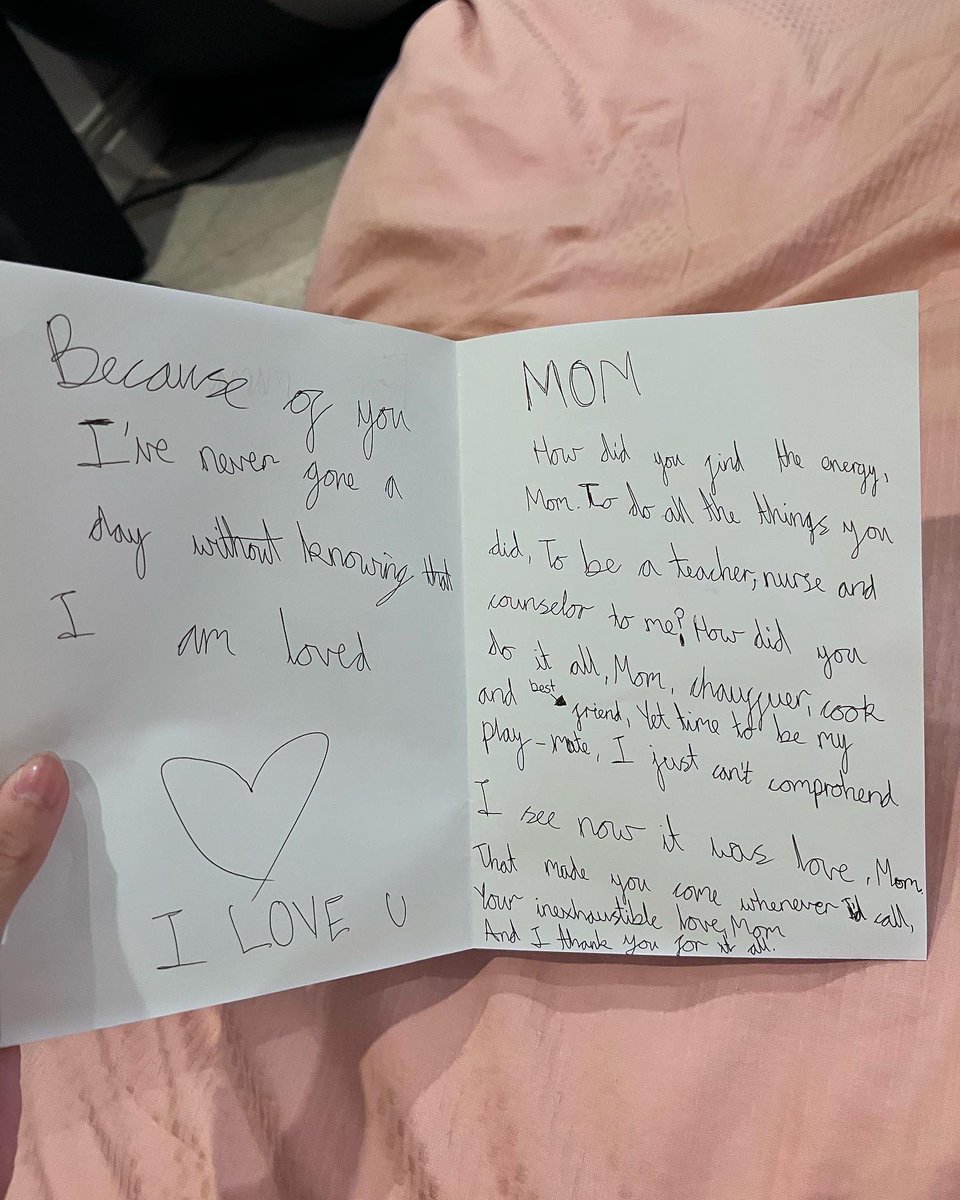 Because of you
I've never gone a
day without knowing that
I am loved
I LOVE U
MOM
How did you find the energy,
Mom. To do all the things you
did, To be a teacher, nurse and
counselor to me? How did you
do it all, Mom, chauffuer, cook
and best friend, Yet time to be my
play-mate, I just can't comprohend
I see now it was love, Mom.
That made you come whenever I'd call,
Your inexhaustible love, Mom
And I thank you for it all.